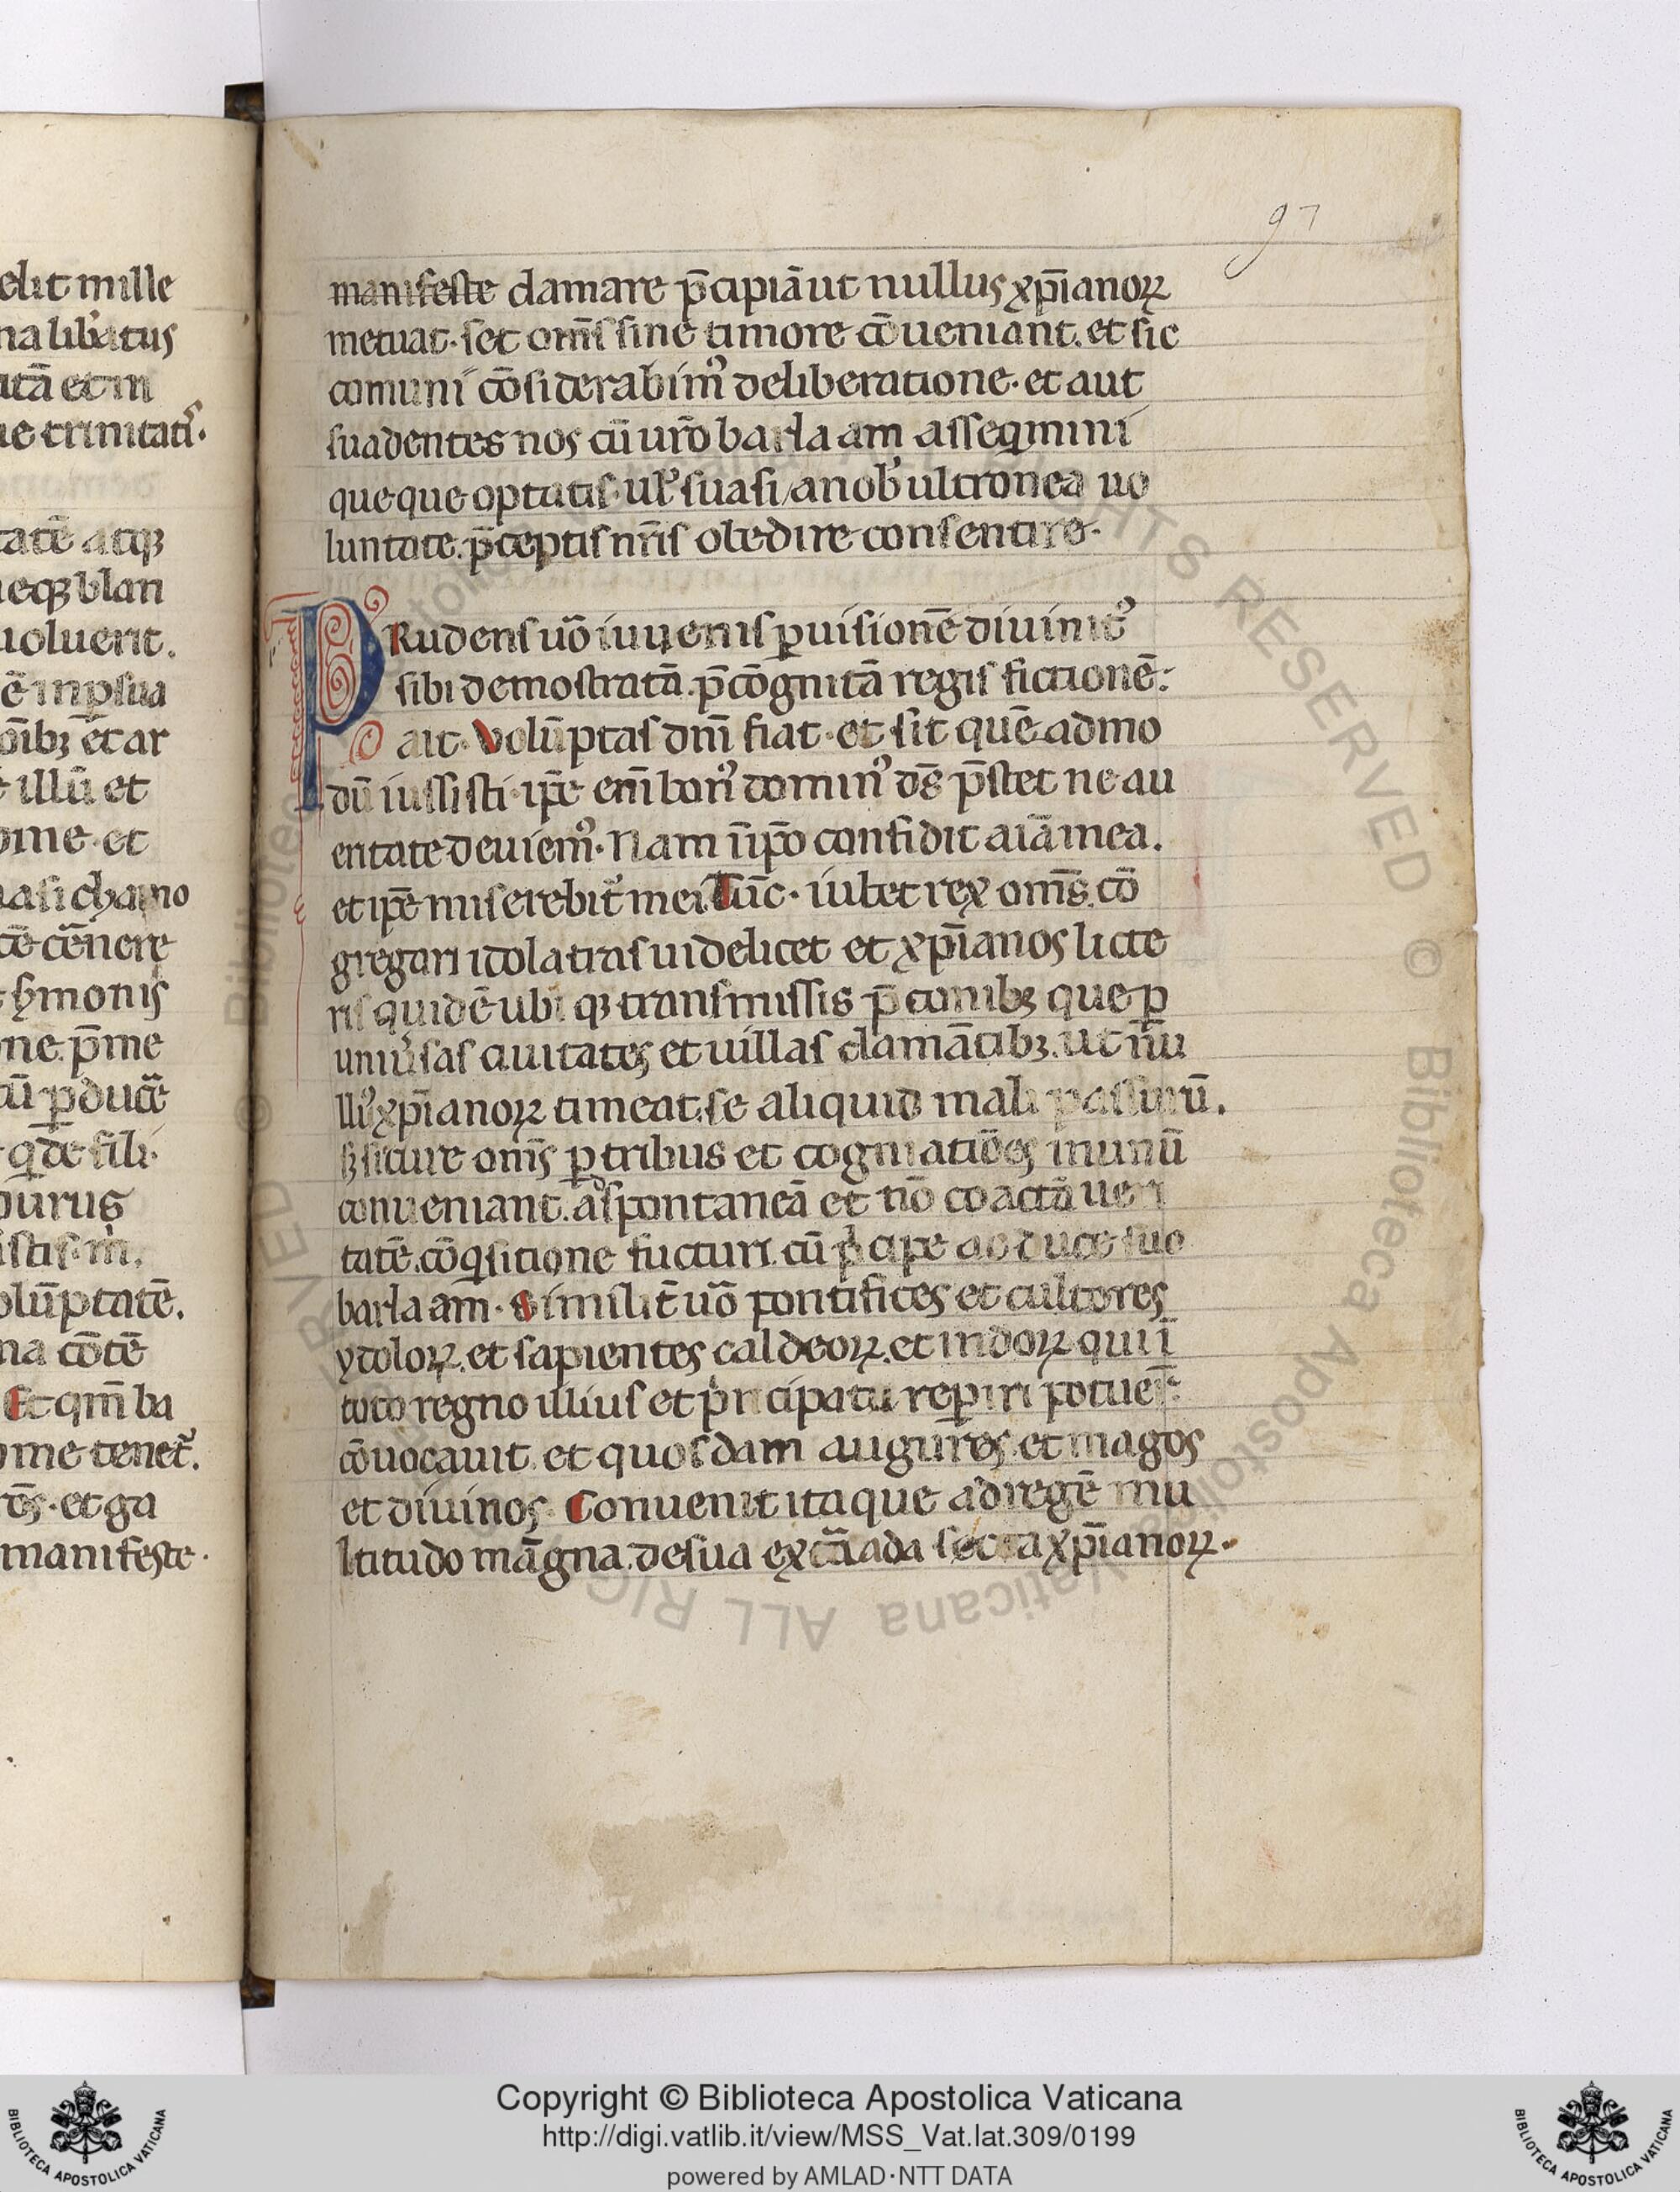 elit mille
na lib̾atus
utā et in
ue trinitatis.
tatē atqꝫ
ieqꝫ blan
uoluerit.
ē in ꝑsua
oībꝫ ēt ar
illū et
ome · et
uasi chamo
cē cēnere
s̾monis
ne. p̄me
tū ꝑduce
q̄ de fili·
purus
istis · m̄.
olūptatē.
na cōtē
Et qm̄ ba
ome tenet᷑.
rēs · et ga
manifeste ·
97
manifeste clamare p̄cipiā ut nullus xp̄ianoꝝ
metuat · set om̄s sine timore cō ueniant. et sic
comuni cōsiderabimꝰ deliberatione · et aut
suadentes nos cū ur̄o barlaam asseqmini
queque optatis · ul̾ suasi / a nob̾ ultronea uo
luntate. p̄ceptis nr̄is obedire consentire ·
PRudens uō iuuenis ꝑ uisionē diuinit᷑
sibi demostratā. p̄cōgnitā regis fictionē:
ait · Volūptas dnī fiat · et sit quē admo
dū iussisti · ip̄e enī bonꝰ dominꝰ ds̄ p̄stet ne a u
eritate deuiemꝰ · Nam ī ip̄o confidit aīa mea.
et ip̄e miserebit᷑ mei Tūc · iubet rex om̄s. cō
gregari idolatras uidelicet et xp̄ianos licte
ris quidē ubi qꝫ transmissis p̄conibꝫ que ꝑ
uniu̾sas ciuitates et uillas clamātibꝫ. ut n̄u
llꝰ xp̄ianoꝝ timeat. se aliquid mali passurū.
sꝫ secure om̄s ꝑ tribus et cognatiōes in unū
conueniant. ad spontaneā et nō coactā ueri
tatē. cōqsitione fucturi. cū p̾cipe ac duce suo
barlaam · Similit̄ uō pontifices et cultores
ydoloꝝ. et sapientes caldeoꝝ. et indoꝝ qui ī
toto regno illius et p̾ncipatu reperiri potuer̄t:
cōuocauit. et quosdam augures. et magos
et diuinos · Conuenit itaque ad regē mu
ltitudo māgna. de sua excecāda secta xp̄ianoꝝ ·
© Biblioteca Apostolica Vaticana ALL RIGHTS RESERVED
Copyright © Biblioteca Apostolica Vaticana
http://digi.vatlib.it/view/MSS_Vat.lat.309/0199
powered by AMLAD·NTT DATA
BIBLIOTECA APOSTOLICA VATICANA
BIBLIOTECA APOSTOLICA VATICANA